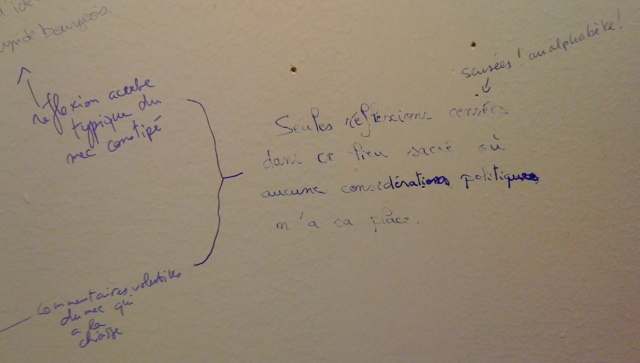 bourgeois.
réflexion acerbe
typique du
mec constipé
sensées! analphabète!
Seules réflexions censées
dans ce lieu sacré où
aucune considérations politiques
n'a sa place.
commentaires
du mec qui
a la
chiasse